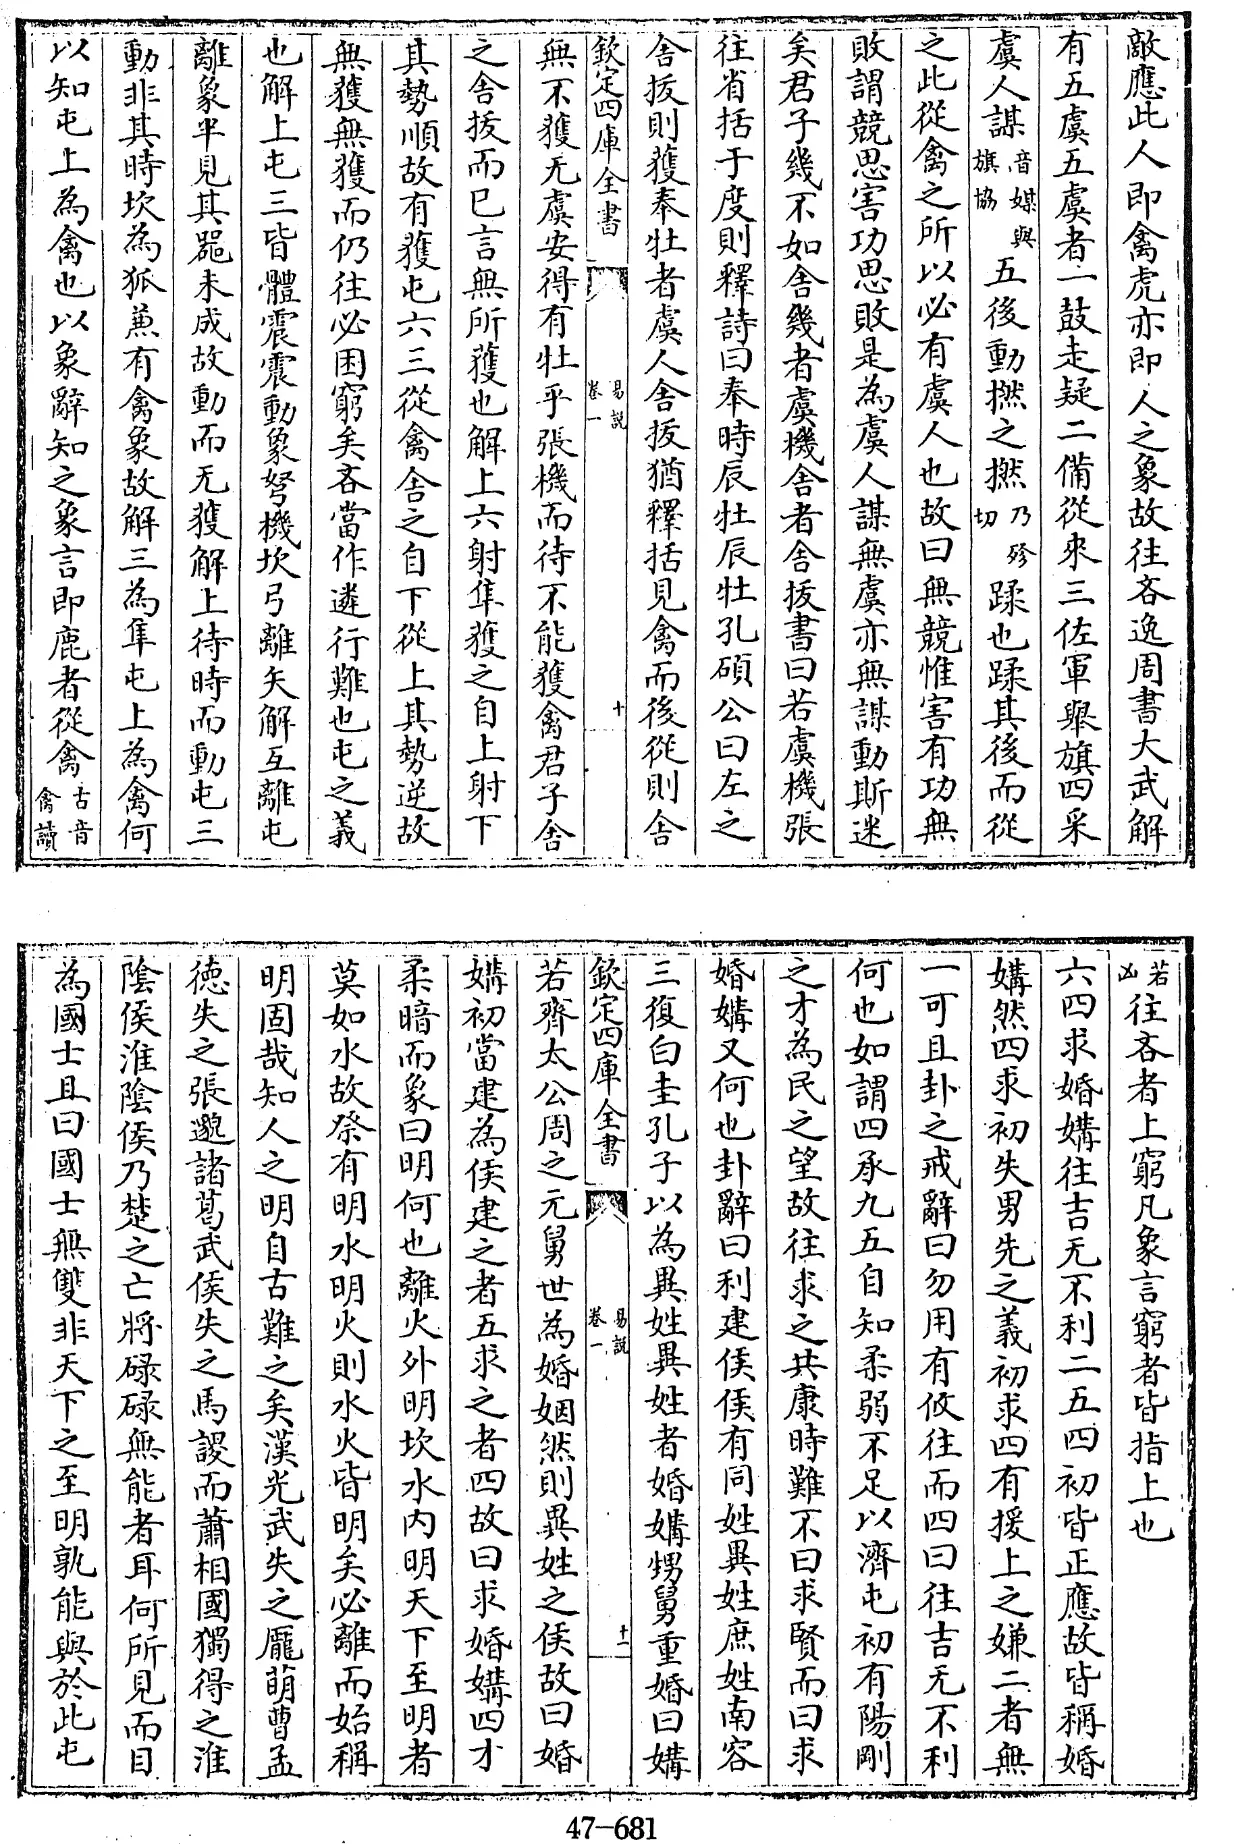 敵應此人即禽虎亦即人之象故往吝逸周書大武解
有五虞五虞者一鼓走疑二備從來三佐軍舉旗四采
虞人謀音媒與旗協五後動撚之撚乃殄切蹂也蹂其後而從
之此從禽之所以必有虞人也故曰無競惟害有功無
敗謂競思害功思敗是為虞人謀無虞亦無謀動斯迷
矣君子幾不如舍幾者虞機舍者舍拔書曰若虞機張
往省括于度則釋詩曰奉時辰牡辰牡孔碩公曰左之
舍拔則獲奉牡者虞人舍拔猶釋括見禽而後從則舍
欽定四庫全書 易說 卷一 十
無不獲无虞安得有牡乎張機而待不能獲禽君子舍
之舍拔而已言無所獲也解上六射隼獲之自上射下
其勢順故有獲屯六三從禽舍之自下從上其勢逆故
無獲無獲而仍往必困窮矣吝當作遴行難也屯之義
也解上屯三皆體震震動象弩機坎弓離矢解互離屯
離象半見其器未成故動而无獲解上待時而動屯三
動非其時坎為狐兼有禽象故解三為隼屯上為禽何
以知屯上為禽也以象辭知之象言即鹿者從禽古音禽讀
若凶往吝者上窮凡象言窮者皆指上也
六四求婚媾往吉无不利二五四初皆正應故皆稱婚
媾然四求初失男先之義初求四有援上之嫌二者無
一可且卦之戒辭曰勿用有攸往而四曰往吉无不利
何也如謂四承九五自知柔弱不足以濟屯初有陽剛
之才為民之望故往求之共康時難不曰求賢而曰求
婚媾又何也卦辭曰利建侯侯有同姓異姓庶姓南容
三復白圭孔子以為異姓異姓者婚媾甥舅重婚曰媾
欽定四庫全書 易說 卷一 十一
若齊太公周之元舅世為婚姻然則異姓之侯故曰婚
媾初當建為侯建之者五求之者四故曰求婚媾四才
柔暗而象曰明何也離火外明坎水内明天下至明者
莫如水故祭有明水明火則水火皆明矣必離而始稱
明固哉知人之明自古難之矣漢光武失之龐萌曹孟
德失之張邈諸葛武侯失之馬謖而蕭相國獨得之淮
陰侯淮陰侯乃楚之亡將碌碌無能者耳何所見而目
為國士且曰國士無雙非天下之至明孰能與於此屯
47-681